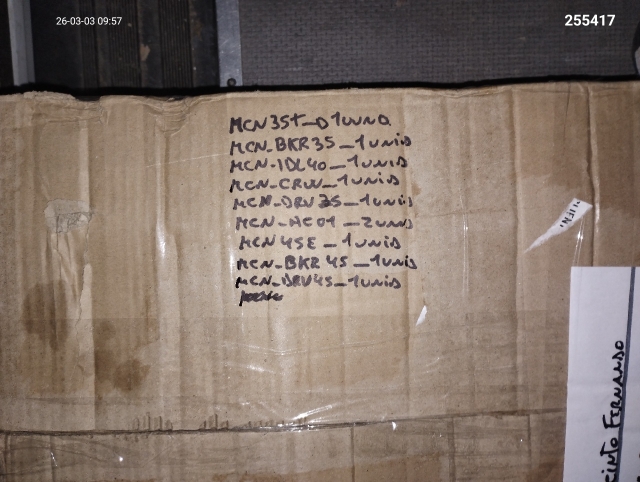 26-03-03 09:57
255417
MCN35T_D 1UND.
MCN_BKR35_1UNID
MCN_IDL40_1UNID
MCN_CRW_1UNID
MCN_DRV35_1UNID
MCN_AC01_2UND
MCN45E_1UNID
MCN_BKR45_1UNID
MCN_DRV45_1UNID
FERNANDO